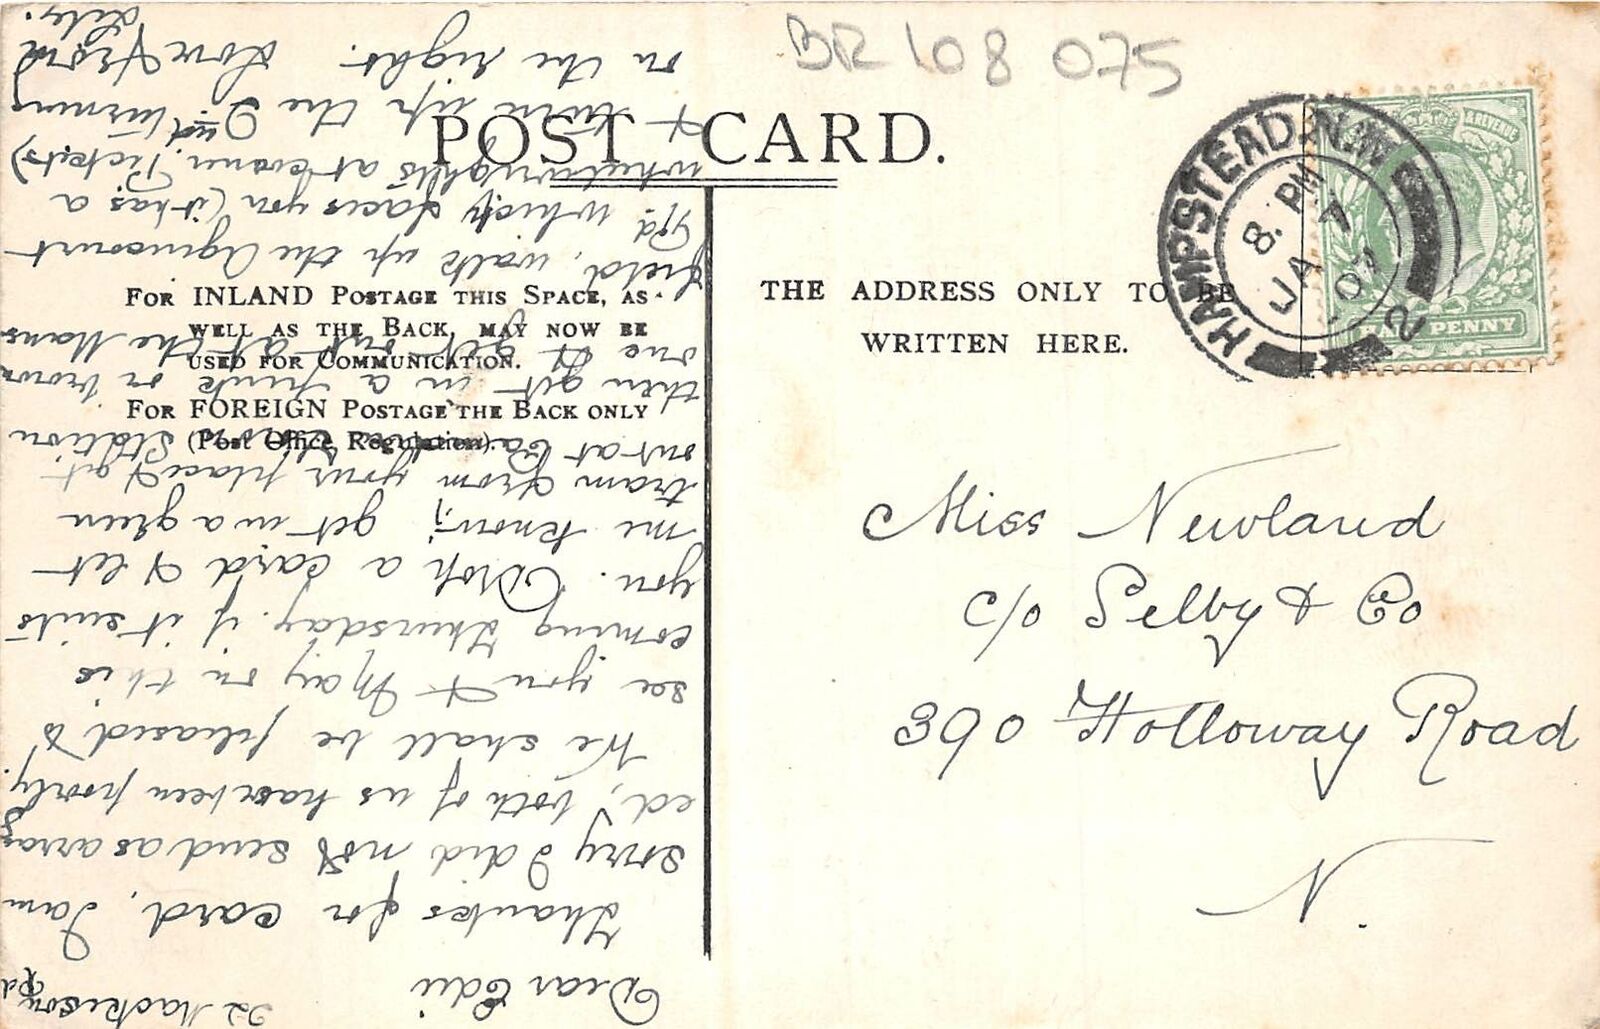 BR 108 075
POST CARD.
FOR INLAND POSTAGE THIS SPACE, AS
WELL AS THE BACK, MAY NOW BE
USED FOR COMMUNICATION.
FOR FOREIGN POSTAGE THE BACK ONLY
(Post Office Regulation).
THE ADDRESS ONLY TO BE
WRITTEN HERE.
HAMPSTEAD. N.W.
8. PM
JA 7
07
2
& REVENUE
HALFPENNY
Miss Newland
c/o Selby & Co
390 Holloway Road
N.
22 Mackeson
Rd
Dear Edie
Thanks for card, I am
sorry I did not send as arrang
ed, both of us have been poorly.
We shall be pleased to
see you & May on this
coming Thursday, if it suits
you. Drop a card & let
me know; get in a green
tram from your place & get
out at Station
then get in a pink or brown
one & get out at the Hans
field, walk up the Agincourt
Rd which faces you (it has a
wheelwrights at corner, Pickets)
& turn up the 2nd turning
on the right. Love from
Lily.